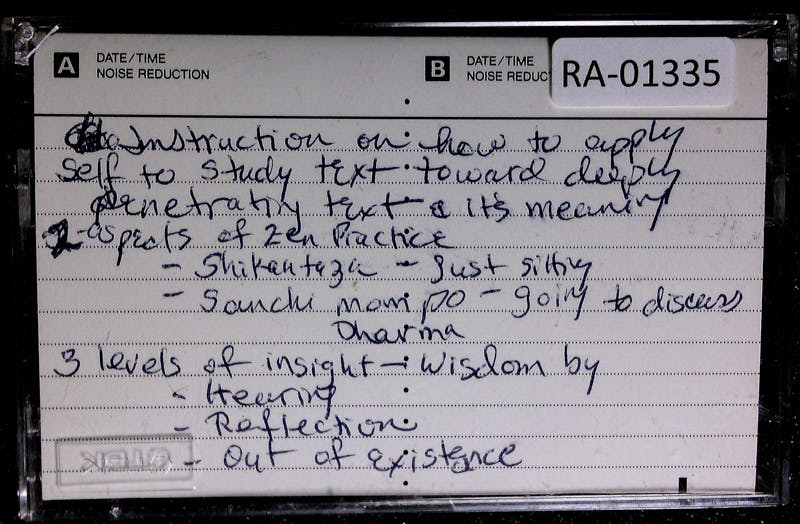 A DATE/TIME NOISE REDUCTION
B DATE/TIME NOISE REDUC
RA-01335
Instruction on how to apply
self to study text toward deeply
penetrating text & it's meaning
2 aspects of Zen Practice
- Shikantaza - just sitting
- Sanchi mom po - going to discuss
Dharma
3 levels of insight - Wisdom by
- Hearing
- Reflection
- Out of existence
TDK